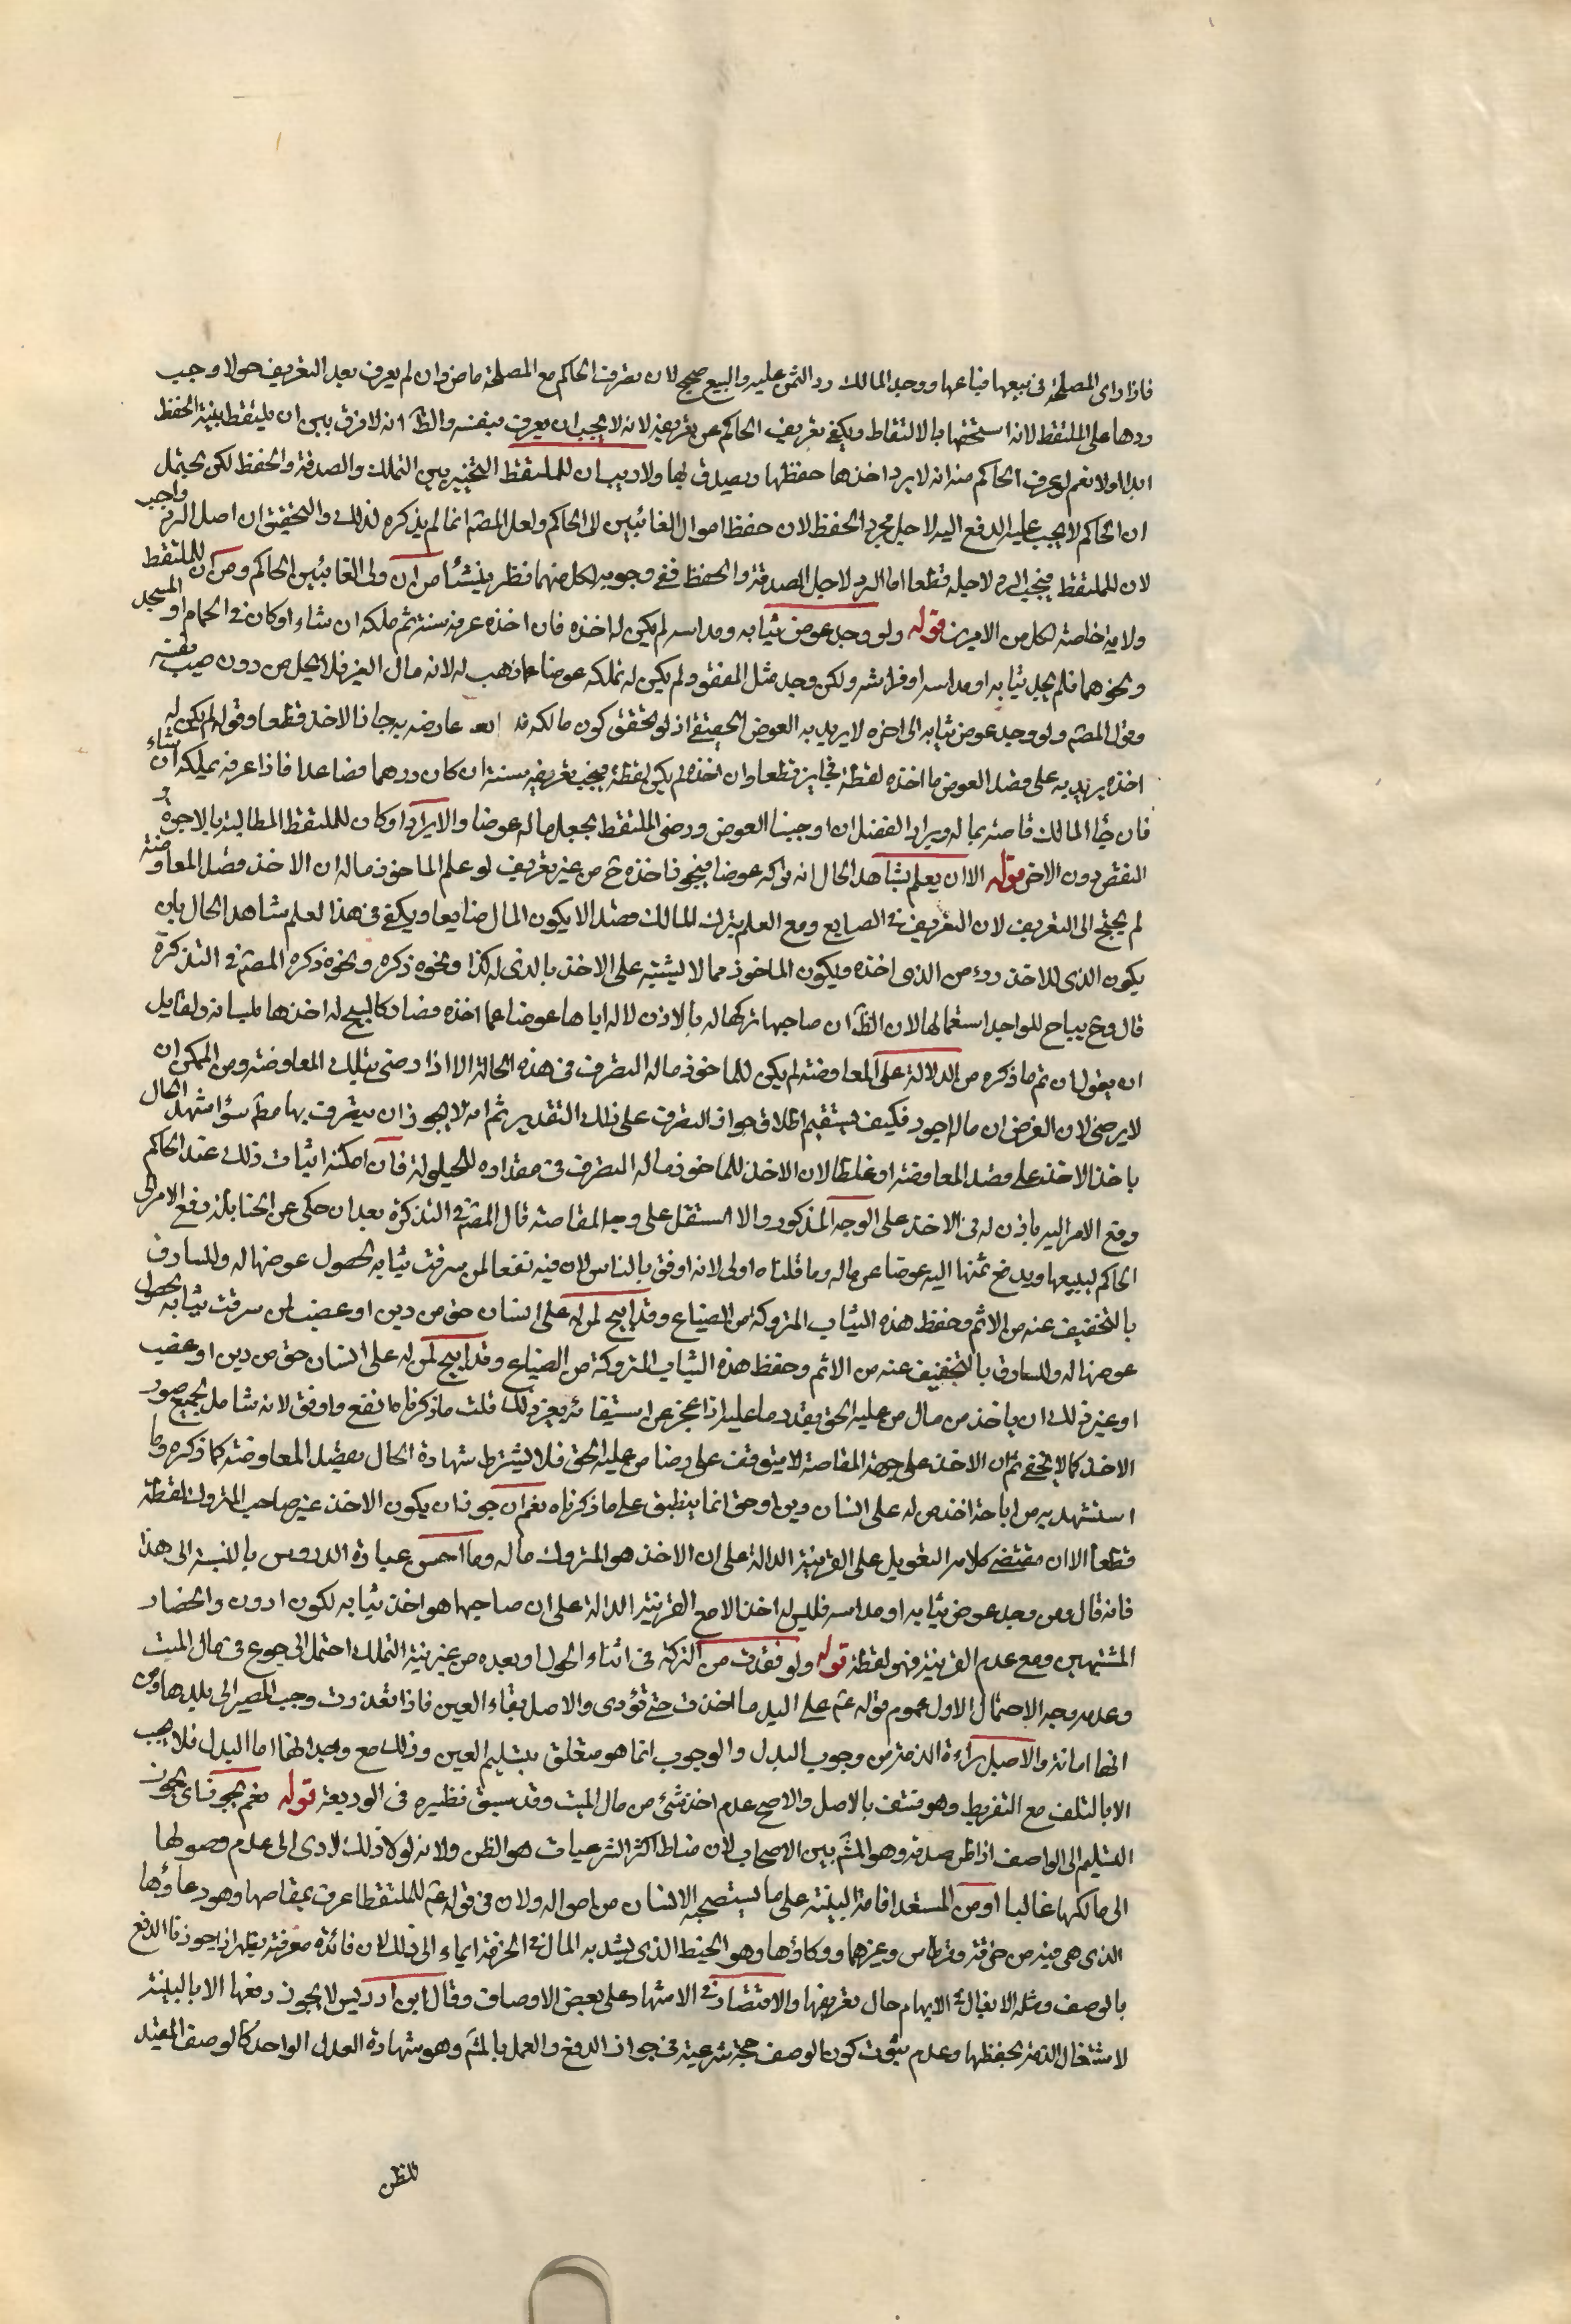 فاذا رأى المصلحة فى بيعها فباعها ووجد المالك رد الثمن عليه والبيع صحيح لان تصرف الحاكم مع المصلحة ماض وان لم يعرف بعد التعريف حولا وجب
ردها على الملتقط لانه استحقها بالالتقاط ويكفى تعريف الحاكم عن تعريفه لانه لا يجب ان يعرف بنفسه والظ انه لا فرق بين ان يلتقط بنية الحفظ
ابدا اولا نعم لو عرف الحاكم منه انه لا يريد اخذها حفظها ويصدق بها ولا ريب ان للملتقط التخيير بين التملك والصدقة والحفظ لكن يحتمل
ان الحاكم لا يجب عليه الدفع اليه لاجل مجرد الحفظ لان حفظ اموال الغائبين الى الحاكم ولعل المصّ انما لم يذكره لذلك والتحقيق ان اصل الرد واجب
لان للملتقط فيجب الرد لاجله قطعا اما الرد لاجل الصدقة والحفظ ففى وجوبه لكل منهما نظر ينشأ من ان ولى الغائبين الحاكم ومن ان للملتقط
ولاية خاصة لكل من الامرين قوله ولو وجد عوض ثيابه ومداسه لم يكن له اخذه فان اخذه عرفه سنة ثم ملكه ان شاء او كان فى الحمام او المسجد
ونحوهما فلم يجد ثيابه او مداسه او فراشه ولكن وجد مثل المفقود لم يكن له تملكه عوضا عما ذهب له لانه مال الغير فلا يحل من دون طيب نفسه
وقول المصّ ولو وجد عوض ثيابه الى اخره لا يريد به العوض الحقيقى اذ لو تحقق كون مالكه عارضه به جاز الاخذ قطعا وقوله لم يكن له
اخذه يريد به على قصد العوض ما اخذه لقطة فجايز قطعا وان اخذه لم يكن لقطة فيجب تعريفه سنة ان كان درهما فصاعدا فاذا عرفه يملكه ان شاء
فان جاء المالك قاصه بماله ويراد الفضل ان اوجبنا العوض ورضى الملتقط بجعل ماله عوضا والا يراد او كان للملتقط المطالبة بالاجرة و
النقص دون الاخر قوله الا ان يعلم بشاهد الحال انه تركه عوضا فيجوز اخذه ح من غير تعريف لو علم الماخوذ ماله ان الاخذ قصد المعاوضة
لم يحتج الى التعريف لان التعريف فى الضايع ومع العلم بترك المالك قصدا لا يكون المال ضايعا ويكفى فى هذا العلم شاهد الحال بان
يكون الذى للاخذ ردء من الذى اخذه ويكون الماخوذ مما لا يشتبه على الاخذ بالذى له كذا ونحوه ذكره ونحوه ذكره المصّ فى التذكرة
قال وح يباح للواجد استعمالها لان الظ ان صاحبها تركها له بالاذن له اياها عوضا عما اخذه فصار كالمبيح له اخذها بلسانه ولقايل
ان يقول ان تم ما ذكره من الدلالة على المعاوضة لم يكن للماخوذ ماله التصرف فى هذه الحالة الا اذا رضى بتلك المعاوضة ومن الممكن ان
لا يرضى لان الغرض ان ماله اجود فكيف يستقيم اطلاق جواز التصرف على ذلك التقدير ثم انه لا يجوز ان يتصرف بها مط سواء شهد الحال
باخذ الاخذ على قصد المعاوضة او غلطا لان الاخذ للماخوذ ماله التصرف فى مقداره للحيلولة فان امكنه اثبات ذلك عند الحاكم
رفع الامر اليه ياذن له فى الاخذ على الوجه المذكور والا استقل على وجه المقاصة قال المصّ فى التذكرة بعد ان حكى عن الحنابلة رفع الامر الى
الحاكم لبيعها ويدفع ثمنها اليه عوضا عن ماله وما قلناه اولى لانه اوفق بالناس لان فيه نفعا لمن سرقت ثيابه بحصول عوضها له وللسارق
بالتخفيف عنه من الاثم وحفظ هذه الثياب المتروكة من الضياع وقد ابيح لمن له على انسان حق من دين او غصب لمن سرقت ثيابه بحصول
عوضها له وللسارق بالتخفيف عنه من الاثم وحفظ هذه الثياب المتروكة من الضياع وقد ابيح لمن له على انسان حق من دين او غصب
او غير ذلك ان ياخذ من مال من عليه الحق بقدر ما عليه اذا عجز عن استيفائه بغير ذلك قلت ما ذكرناه انفع واوفق لانه شامل لجميع صور
الاخذ كما لا يخفى ثم ان الاخذ على جهة المقاصة لا يتوقف على رضا من عليه الحق فلا يشترط شهادة الحال بقصد المعاوضة كما ذكره وما
استشهد به من اباحة اخذ من له على انسان دين او حق انما ينطبق على ما ذكرناه نعم ان جوزنا ان يكون الاخذ غير صاحب المتروك فلقطة
قطعا الا ان مقتضى كلامه التعويل على القرينة الدالة على ان الاخذ هو المتروك ماله وما احسن عبارة الدروس بالنسبة الى هذا
فانه قال ومن وجد عوض ثيابه او مداسه فليس له اخذ الا مع القرينة الدالة على ان صاحبها هو اخذ ثيابه لكون ادون وانحصار
المشتبهين ومع عدم القرينة فهو لقطة قوله ولو فقدت من التركة فى اثناء الحول او بعده من غير نية التملك احتمل الرجوع فى مال الميت
وعدمه وجه الاحتمال الاول عموم قوله عم على اليد ما اخذت حتى تؤدى والاصل بقاء العين فاذا تعذرت وجب المصير الى بدلها ومن
انها امانة والاصل براءة الذمة من وجوب البدل والوجوب انما هو متعلق بتسليم العين وذلك مع وجدانها اما البدل فلا يجب
الا بالتلف مع التفريط وهو منتف بالاصل والاصح عدم اخذ شئ من مال الميت وقد سبق نظيره فى الوديعة قوله نعم يجوز اى يجوز
التسليم الى الواصف اذا ظن صدقه وهو المشّ بين الاصحاب لان مناط اكثر الشرعيات هو الظن ولانه لولا ذلك لادى الى عدم وصولها
الى مالكها غالبا او من المستعد اقامة البينة على ما يستصحبه الانسان من امواله ولان فى قوله عم للملتقط اعرف عفاصها وهو وعاؤها
الذى هى فيه من خرقة وقرطاس وغيرهما ووكاؤها وهو الخيط الذى يشد به المال فى الخرقة ايماء الى ذلك لان فائدة معرفته يظهر انه يجوز الدفع
بالوصف ومثله الايغال فى الابهام حال تعريفها والاقتصار فى الاشهاد على بعض الاوصاف وقال ابن ادريس لا يجوز دفعها الا بالبينة
لاشتغال الذمة بحفظها وعدم ثبوت كون الوصف حجة شرعية فى جواز الدفع والعمل بالمشّ وهو شهادة العدل الواحد كالوصف المفيد
للظن